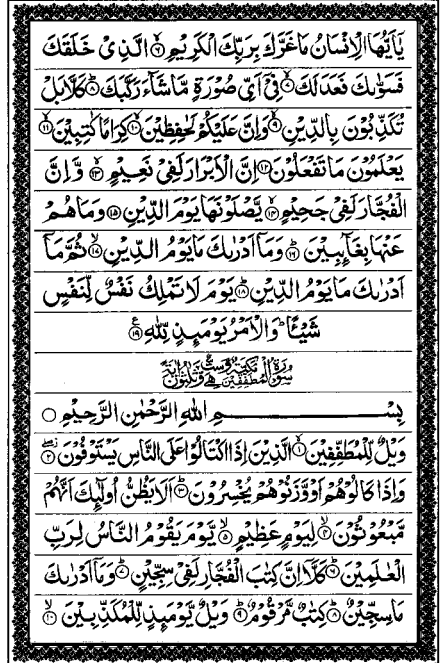 يٰۤاَيُّهَا الْاِنْسَانُ مَا غَرَّكَ بِرَبِّكَ الْكَرِيْمِ ۙ﴿۶﴾ الَّذِىْ خَلَقَكَ
فَسَوّٰىكَ فَعَدَلَكَ ۙ﴿۷﴾ فِىْۤ اَىِّ صُوْرَةٍ مَّا شَآءَ رَكَّبَكَ ؕ﴿۸﴾ كَلَّا بَلْ
تُكَذِّبُوْنَ بِالدِّيْنِ ۙ﴿۹﴾ وَاِنَّ عَلَيْكُمْ لَحٰفِظِيْنَ ۙ﴿۱۰﴾ كِرَامًا كٰتِبِيْنَ ۙ﴿۱۱﴾
يَعْلَمُوْنَ مَا تَفْعَلُوْنَ ﴿۱۲﴾ اِنَّ الْاَبْرَارَ لَفِىْ نَعِيْمٍ ۚ﴿۱۳﴾ وَّاِنَّ
الْفُجَّارَ لَفِىْ جَحِيْمٍ ۚۖ﴿۱۴﴾ يَّصْلَوْنَهَا يَوْمَ الدِّيْنِ ﴿۱۵﴾ وَمَا هُمْ
عَنْهَا بِغَآئِبِيْنَ ؕ﴿۱۶﴾ وَمَاۤ اَدْرٰىكَ مَا يَوْمُ الدِّيْنِ ۙ﴿۱۷﴾ ثُمَّ مَاۤ
اَدْرٰىكَ مَا يَوْمُ الدِّيْنِ ؕ﴿۱۸﴾ يَوْمَ لَا تَمْلِكُ نَفْسٌ لِّنَفْسٍ
شَيْـًٔا ؕ وَالْاَمْرُ يَوْمَئِذٍ لِّلّٰهِ ﴿۱۹﴾ ع
سُوْرَةُ الْمُطَفِّفِيْنَ مَكِّيَّةٌ وَّهِىَ سِتٌّ وَّثَلٰثُوْنَ اٰيَةً
بِسْمِ اللّٰهِ الرَّحْمٰنِ الرَّحِيْمِ
وَيْلٌ لِّلْمُطَفِّفِيْنَ ۙ﴿۱﴾ الَّذِيْنَ اِذَا اكْتَالُوْا عَلَى النَّاسِ يَسْتَوْفُوْنَ ۖ﴿۲﴾
وَاِذَا كَالُوْهُمْ اَوْ وَّزَنُوْهُمْ يُخْسِرُوْنَ ؕ﴿۳﴾ اَلَا يَظُنُّ اُولٰٓئِكَ اَنَّهُمْ
مَّبْعُوْثُوْنَ ۙ﴿۴﴾ لِيَوْمٍ عَظِيْمٍ ۙ﴿۵﴾ يَّوْمَ يَقُوْمُ النَّاسُ لِرَبِّ
الْعٰلَمِيْنَ ؕ﴿۶﴾ كَلَّاۤ اِنَّ كِتٰبَ الْفُجَّارِ لَفِىْ سِجِّيْنٍ ؕ﴿۷﴾ وَمَاۤ اَدْرٰىكَ
مَا سِجِّيْنٌ ؕ﴿۸﴾ كِتٰبٌ مَّرْقُوْمٌ ؕ﴿۹﴾ وَيْلٌ يَّوْمَئِذٍ لِّلْمُكَذِّبِيْنَ ۙ﴿۱۰﴾